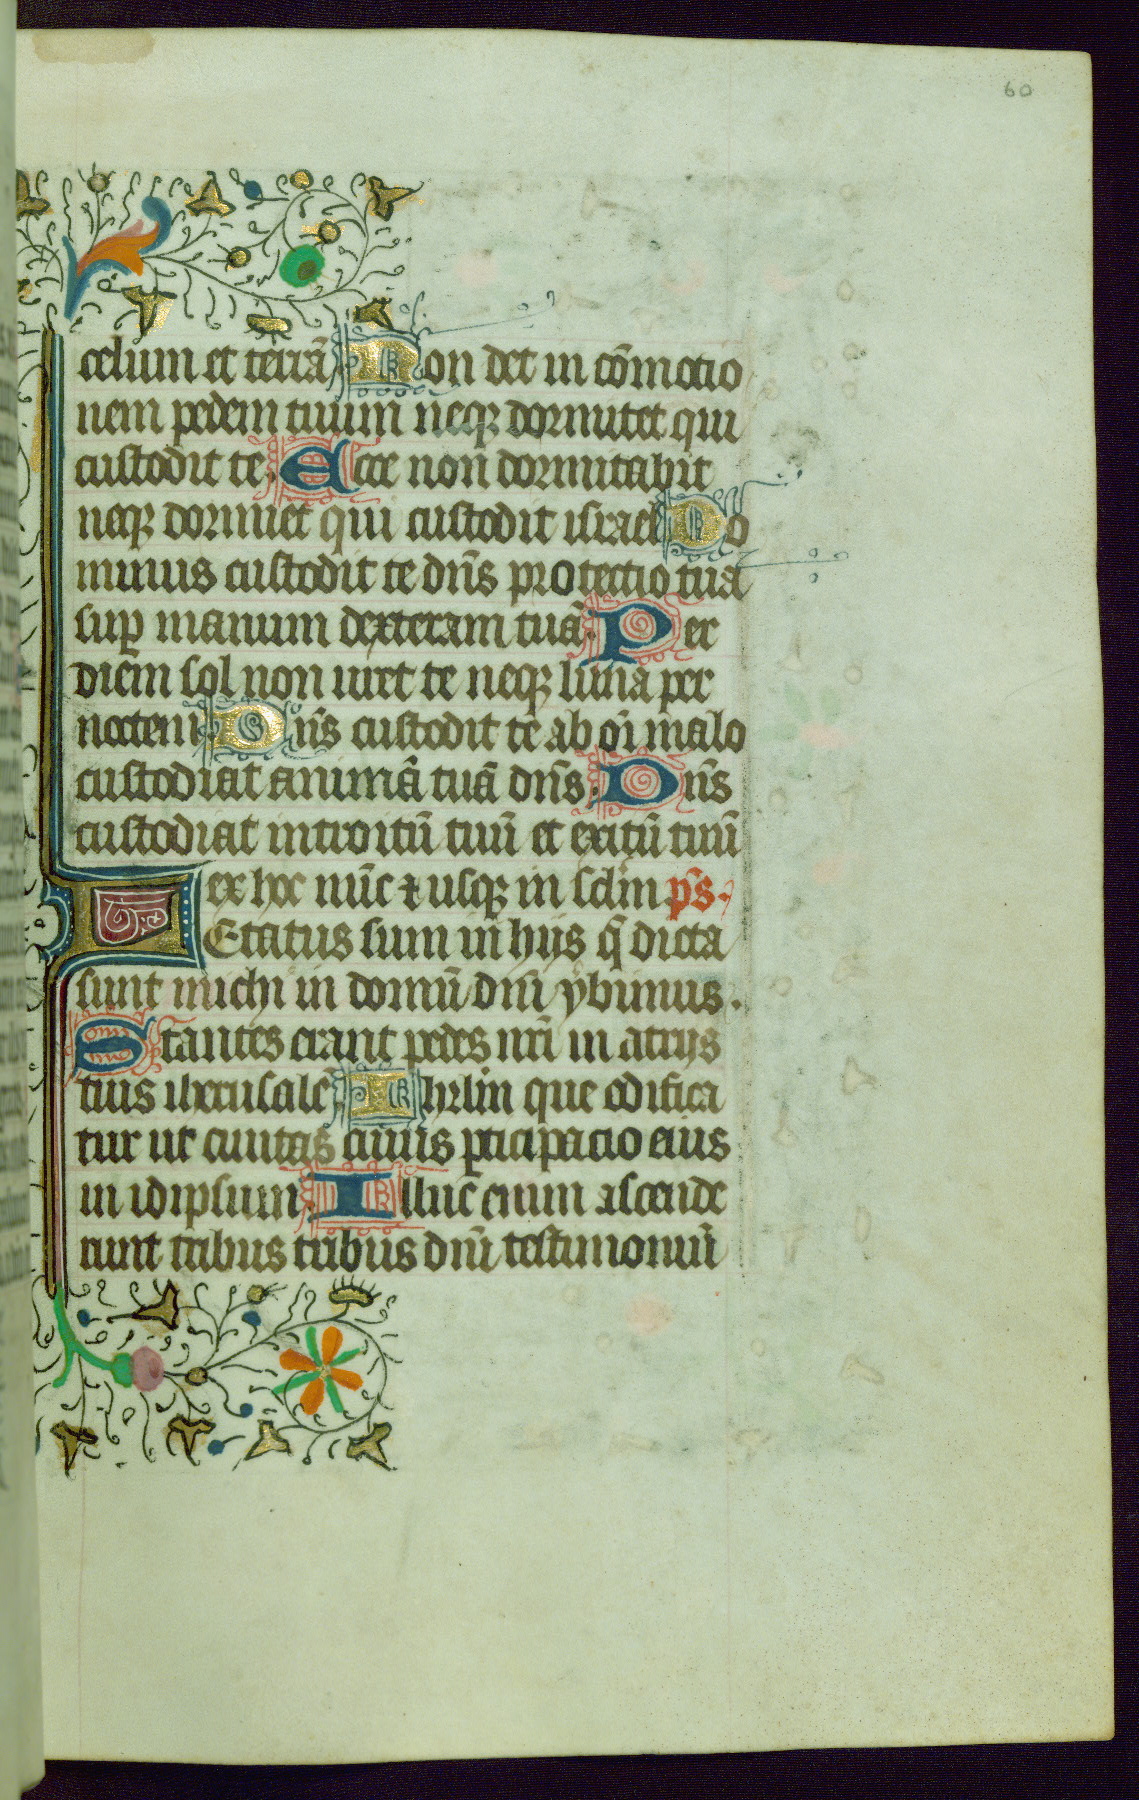 60
celum et terrā Non det in cōmotio
nem pedem tuum neqꝫ dormitet qui
custodit te Ecce non dormitabit
neqꝫ dormiet qui custodit israel Do
minus custodit te dn̄s protectio tua
suꝑ manum dexteram tuā Per
diem sol non uret te neqꝫ luna per
noctem Dn̄s custodit te ab oī malo
custodiat animā tuā dn̄s Dn̄s
custodiat introitū tuū et exitū tuū
ex hoc nūc ⁊ usqꝫ in sclm̄ ps̄.
LEtatus sum in hijs q̄ dicta
sunt michi in domū dn̄i ybimus.
Stantes erant pedes nr̄i in atrijs
tuis iherusalē Ihrlm̄ que edifica
tur ut ciuitas cuius ꝑticipacio eius
in idipsum Illuc enim ascende
runt tribus tribus dn̄i testimoniū